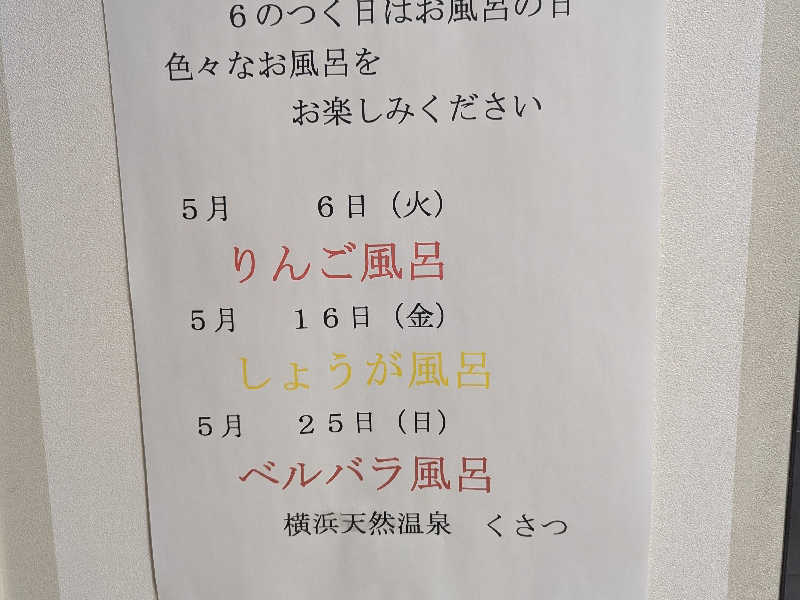 ６のつく日はお風呂の日
色々なお風呂を
お楽しみください
５月　６日（火）
りんご風呂
５月　１６日（金）
しょうが風呂
５月　２５日（日）
ベルバラ風呂
横浜天然温泉　くさつ